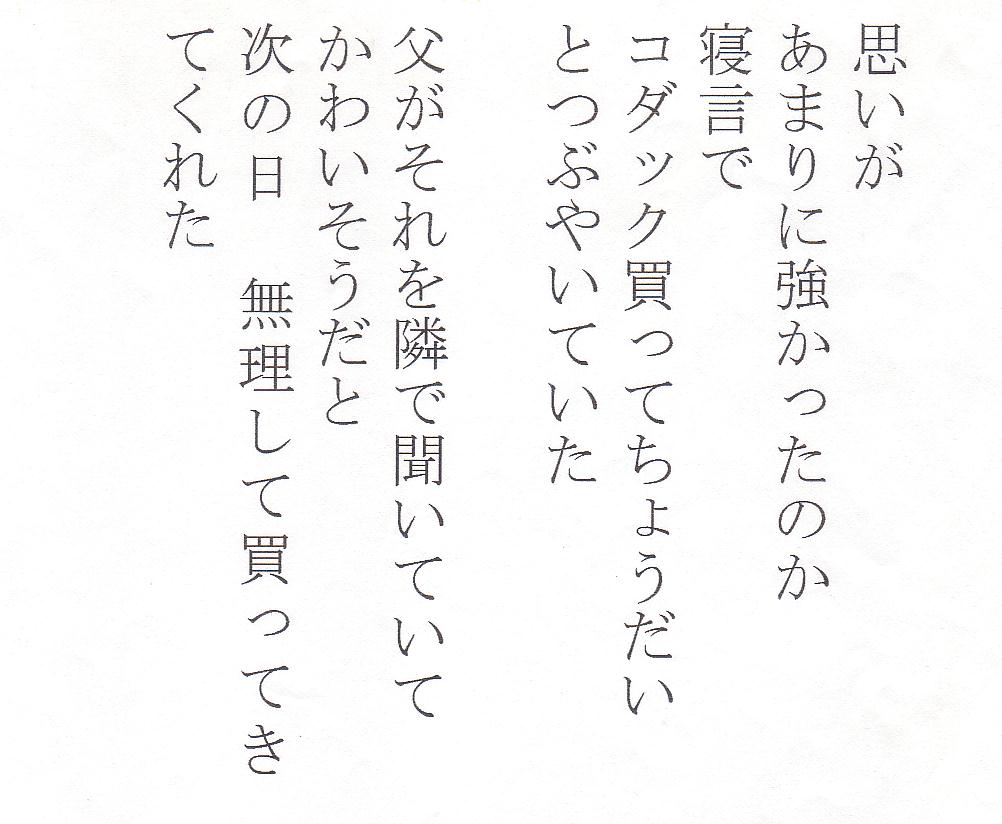 思いが
あまりに強かったのか
寝言で
コダック買ってちょうだい
とつぶやいていた
父がそれを隣で聞いていて
かわいそうだと
次の日　無理して買ってき
てくれた